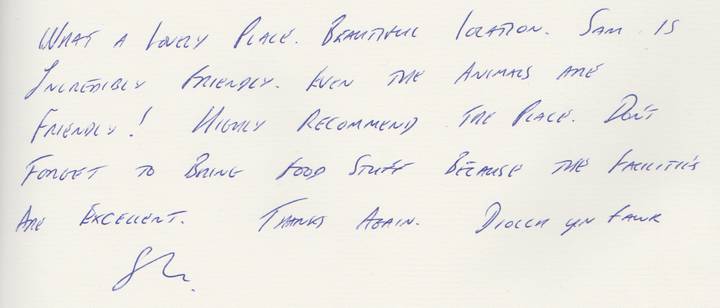 WHAT A LOVELY PLACE. BEAUTIFUL LOCATION. SAM IS
INCREDIBLY FRIENDLY. EVEN THE ANIMALS ARE
FRIENDLY! HIGHLY RECOMMEND THE PLACE. DON'T
FORGET TO BRING FOOD STUFF BECAUSE THE FACILITIES
ARE EXCELLENT. THANKS AGAIN. DIOLCH YN FAWR